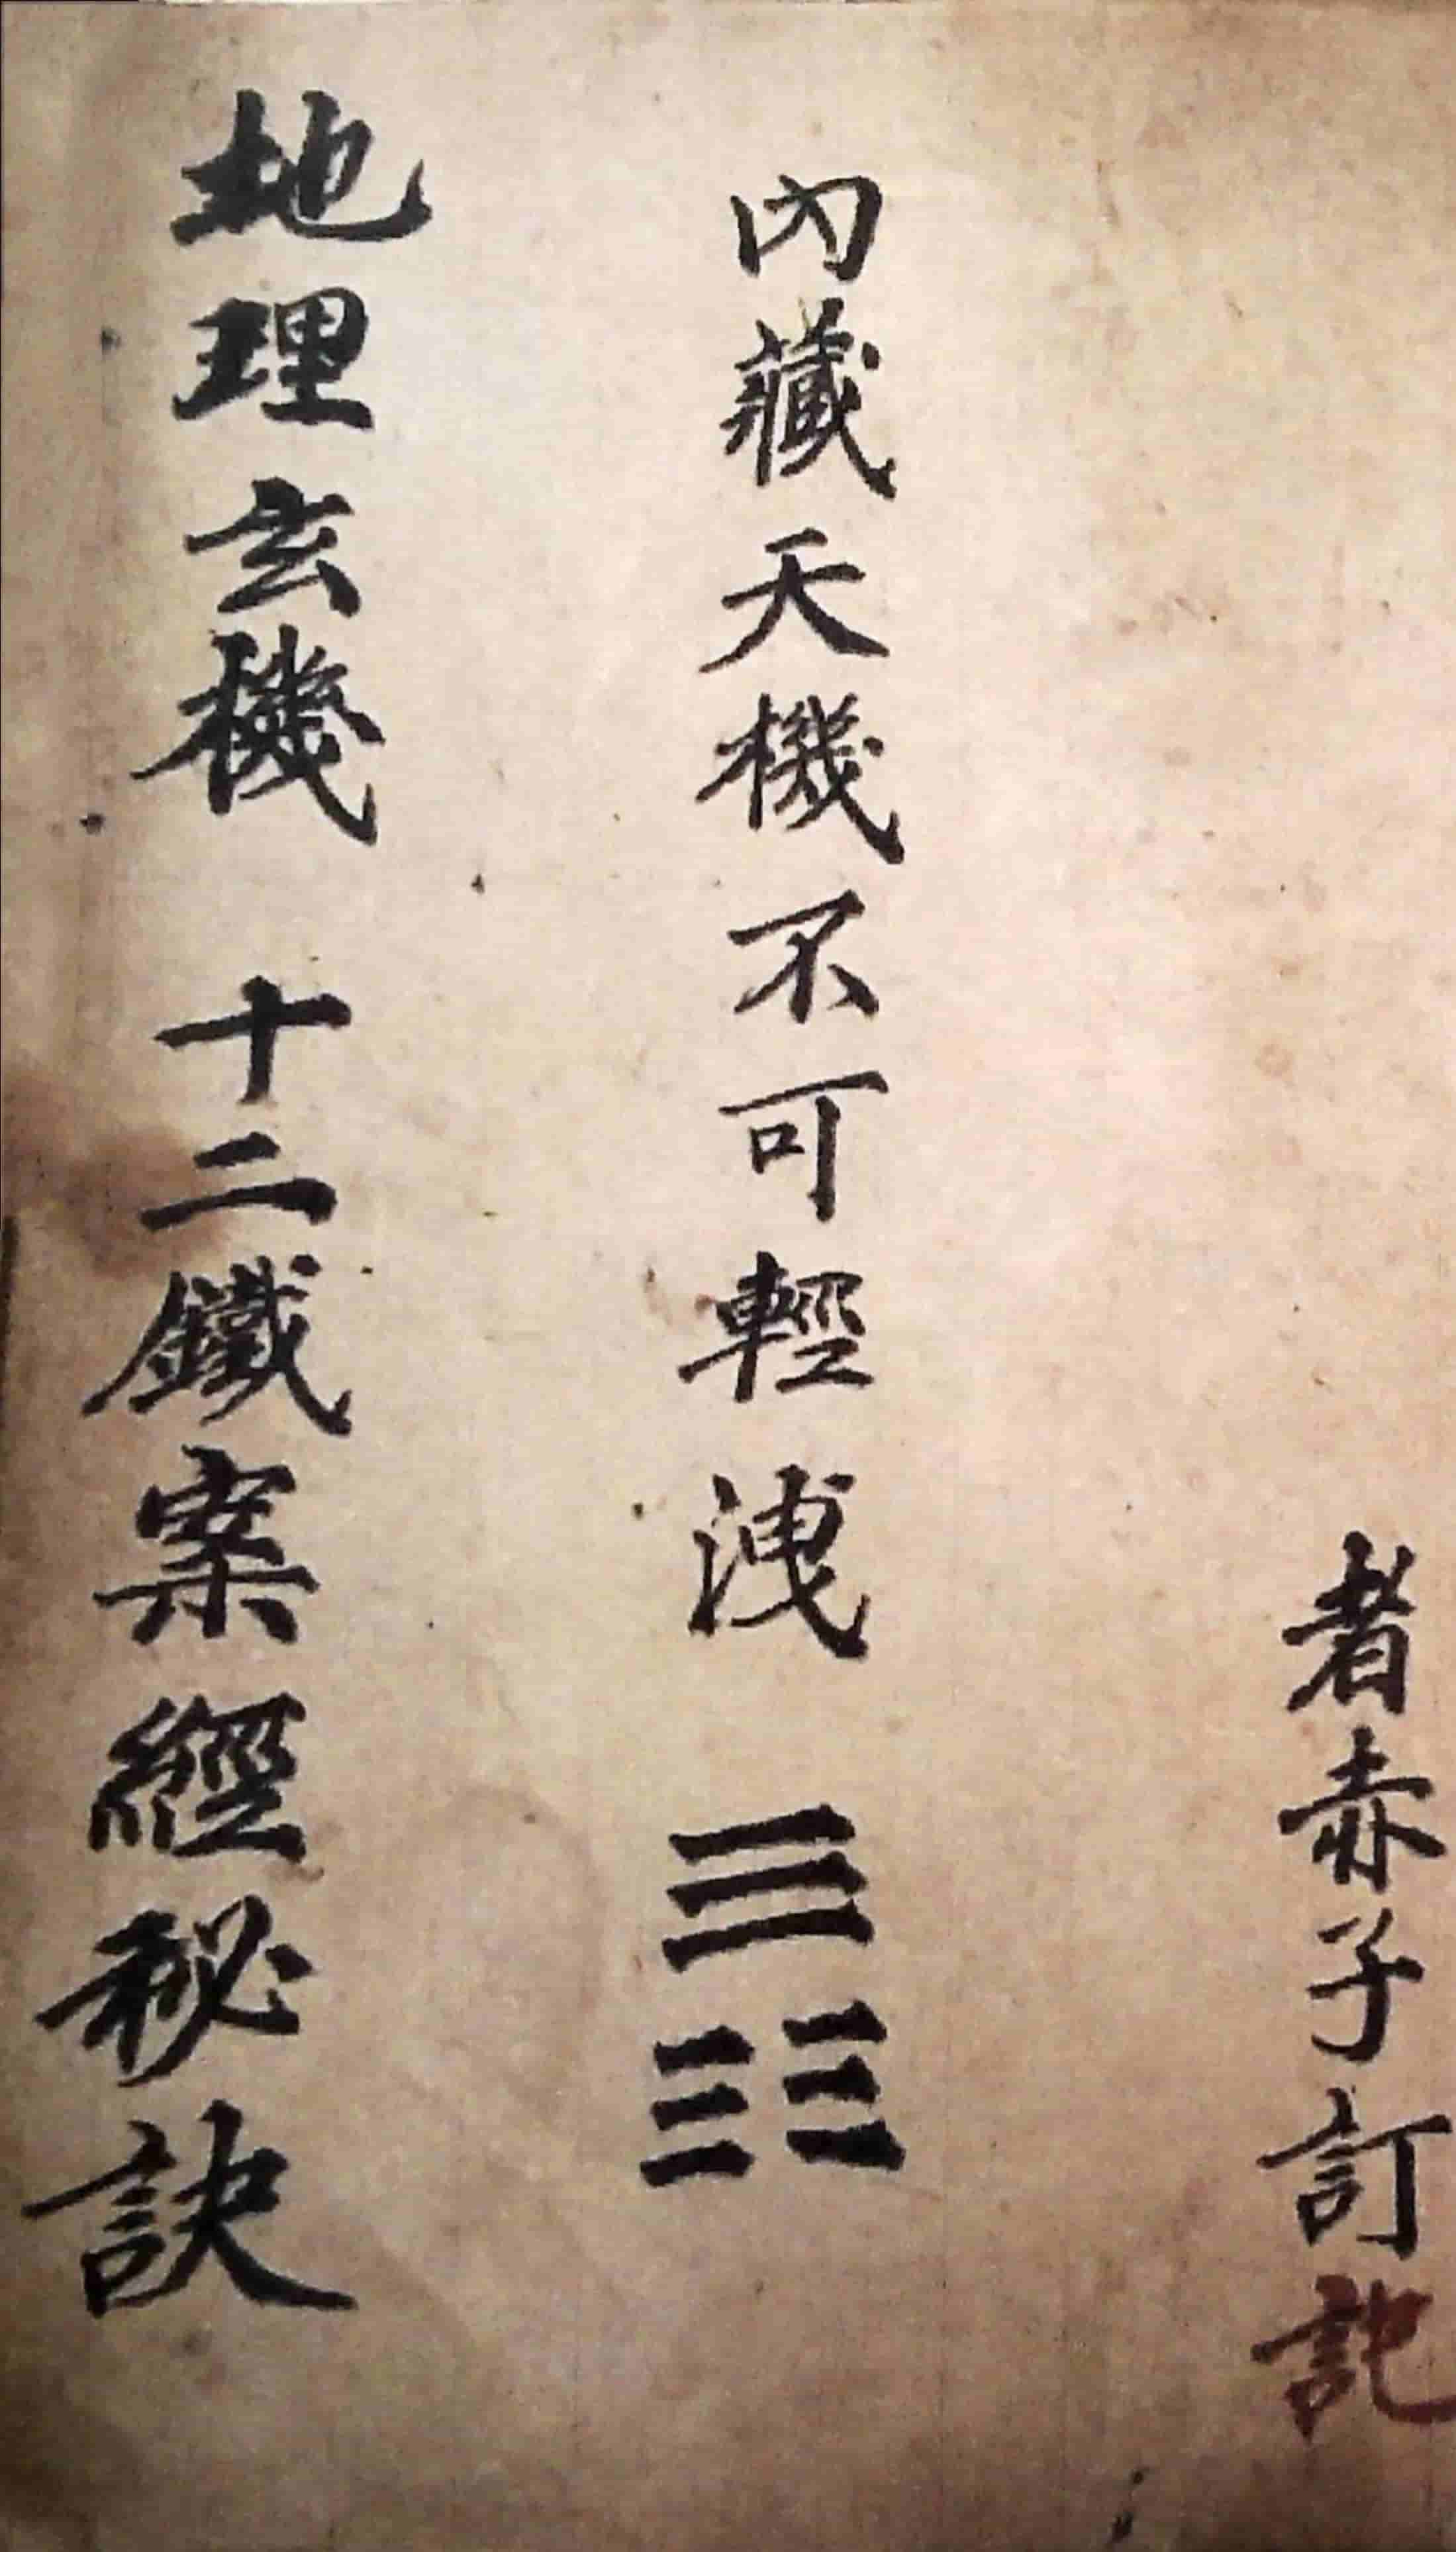 者赤子訂記
內藏天機不可輕洩 ☰☷
地理玄機 十二鐵案經秘訣